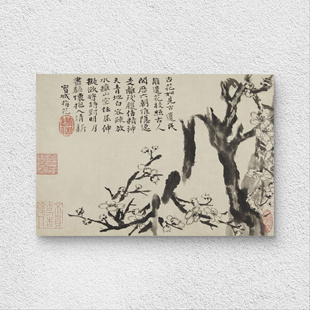 古花如見古遺民
誰遣花枝照古人
閱歷六朝惟隱逸
支離殘臘倍精神
天青地白容疏放
水擁山空任屈伸
擬欲將詩對明月
盡驅懷抱入清新